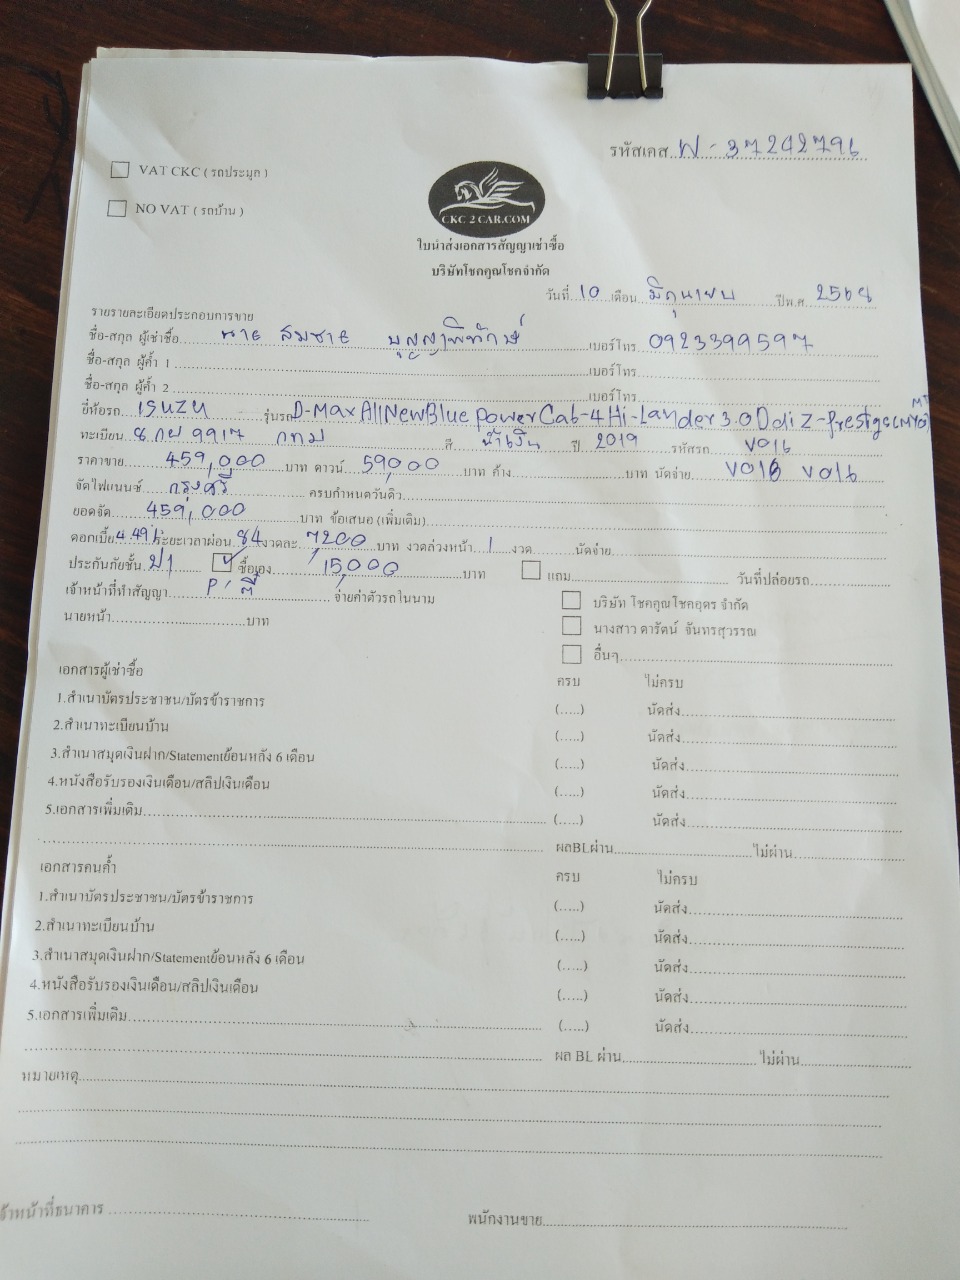 รหัสเคส W-37242796
VAT CKC ( รถประมูล )
NO VAT ( รถบ้าน )
CKC 2 CAR.COM
ใบนำส่งเอกสารสัญญาเช่าซื้อ
บริษัทโชคคูณโชคจำกัด
วันที่ 10 เดือน มิถุนายน ปีพ.ศ. 2568
รายรายละเอียดประกอบการขาย
ชื่อ-สกุล ผู้เช่าซื้อ นาย สมชาย บุญญาพิทักษ์ เบอร์โทร 0923399597
ชื่อ-สกุล ผู้ค้ำ 1 เบอร์โทร
ชื่อ-สกุล ผู้ค้ำ 2 เบอร์โทร
ยี่ห้อรถ ISUZU รุ่นรถ D-Max All New Blue power Cab-4 Hi-Lander 3.0 Ddi Z-Prestige MT
ทะเบียน 8 กย 9917 กทม สี น้ำเงิน ปี 2019 รหัสรถ V016
ราคาขาย 459,000 บาท ดาวน์ 59,000 บาท ค้าง บาท นัดจ่าย V016 V016
จัดไฟแนนซ์ กรุงศรี ครบกำหนดวันดิว
ยอดจัด 459,000 บาท ข้อเสนอ (เพิ่มเติม)
ดอกเบี้ย 4.49% ระยะเวลาผ่อน 84 งวดละ 7,200 บาท งวดล่วงหน้า 1 งวด นัดจ่าย
ประกันภัยชั้น ป1 ซื้อเอง 15,000 บาท แถม วันที่ปล่อยรถ
เจ้าหน้าที่ทำสัญญา P'ตี๋ จ่ายค่าตัวรถในนาม
บริษัท โชคคูณโชคอุดร จำกัด
นายหน้า บาท
นางสาว ดารัตน์ จันทรสุวรรณ
อื่นๆ
เอกสารผู้เช่าซื้อ ครบ ไม่ครบ
1.สำเนาบัตรประชาชน/บัตรข้าราชการ (.....) นัดส่ง
2.สำเนาทะเบียนบ้าน (.....) นัดส่ง
3.สำเนาสมุดเงินฝาก/Statementย้อนหลัง 6 เดือน (.....) นัดส่ง
4.หนังสือรับรองเงินเดือน/สลิปเงินเดือน (.....) นัดส่ง
5.เอกสารเพิ่มเติม (.....) นัดส่ง
ผลBLผ่าน ไม่ผ่าน
เอกสารคนค้ำ ครบ ไม่ครบ
1.สำเนาบัตรประชาชน/บัตรข้าราชการ (.....) นัดส่ง
2.สำเนาทะเบียนบ้าน (.....) นัดส่ง
3.สำเนาสมุดเงินฝาก/Statementย้อนหลัง 6 เดือน (.....) นัดส่ง
4.หนังสือรับรองเงินเดือน/สลิปเงินเดือน (.....) นัดส่ง
5.เอกสารเพิ่มเติม (.....) นัดส่ง
ผล BL ผ่าน ไม่ผ่าน
หมายเหตุ
จ้าหน้าที่ธนาคาร พนักงานขาย